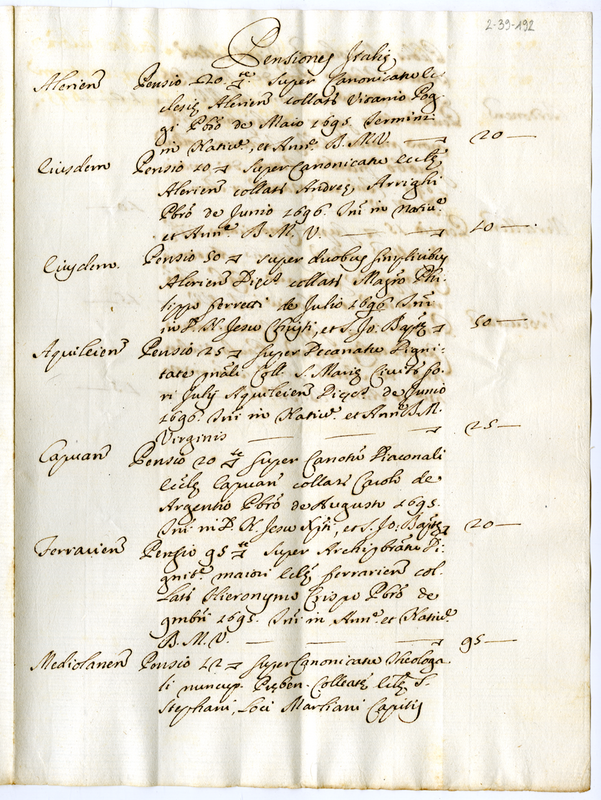 2-39-192
Pensiones Italiæ
Alerien Pensio 20 super Canonicatu Ec
clesiæ Alerien collati Vitanio Pog
gi Pbro de Maio 1695 Termini
in Nativ., et Ann. B. M. V. 20
Eiusdem Pensio 10 super Canonicatu Eccliæ
Alerien collati Andreæ Arrighi
Pbro de Junio 1696. Tni in Nativ.
et Ann. B. M. V. 10
Eiusdem. Pensio 50 super duobus simplicibus
Alerien Dioc collati Magro Phi
lippo Ferretti de Julio 1696 Tni
in D. N. Jesu Christi, et S. Jo. Baptæ 50
Aquileien Pensio 25 super Decanatu Digni
tate pnali Coll. S. Mariæ Civitis fo
ri Julij Aquileien Dioc de Junio
1696. Tni in Nativ. et Ann. B. M.
Virginis 25
Capuan Pensio 20 super Canotu Diaconali
Eccliæ Capuan collati Carolo de
Argentio Pbro de Augusto 1695.
Tni in D. N. Jesu Xpti, et S. Jo: Baptæ 20
Ferrarien Pensio 95 super Archipbratu Di
gnit. maiori Eccliæ Ferrarien col
lati Hieronymo Crispo Pbro de
Tni in Ann. et Nativ.
B. M. V. 95
Mediolanen Pensio 12 super Canonicatu Theologa
li nuncup. Præben. Colleatæ Eccliæ S.
Stephani, Loci Marliani Capitis